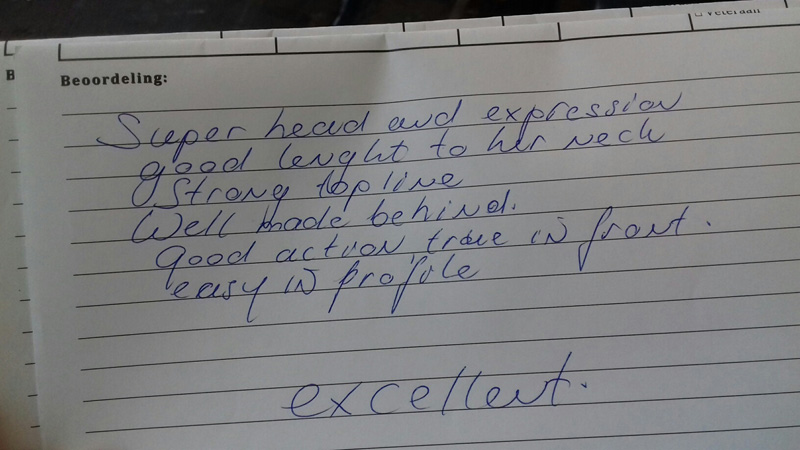 Veteraan
B
Beoordeling:
Super head and expression
good lenght to her neck
Strong topline
Well made behind.
Good action, true in front.
easy in profile
excellent.